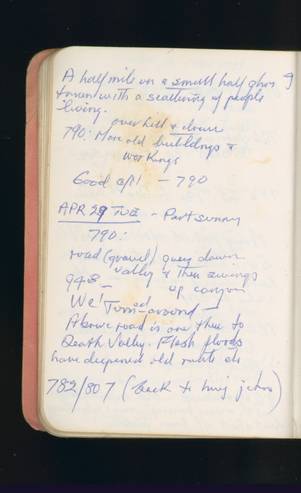 A half mile on a small half ghos 9
town with a scattering of people
living.
over hill & down
790: More old buildings &
workings
Good apl - 790
APR 29 TUE - Part sunny
790:
road (gravel) goes down
valley & then swings
948 - up canyon
We Turned around -
Above road is one thru to
Death Valley. Flash floods
have deepened old
782/807 (back to hwy jction)